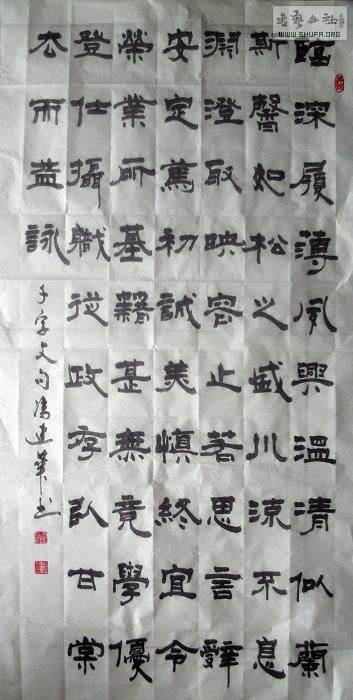 臨深履薄夙興溫清似蘭
斯馨如松之盛川流不息
淵澄取映容止若思言辭
安定篤初誠美慎終宜令
榮業所基籍甚無竟學優
登仕攝職從政存以甘棠
去而益詠
千字文句冯建华书
書藝公社
WWW.SHUFA.ORG